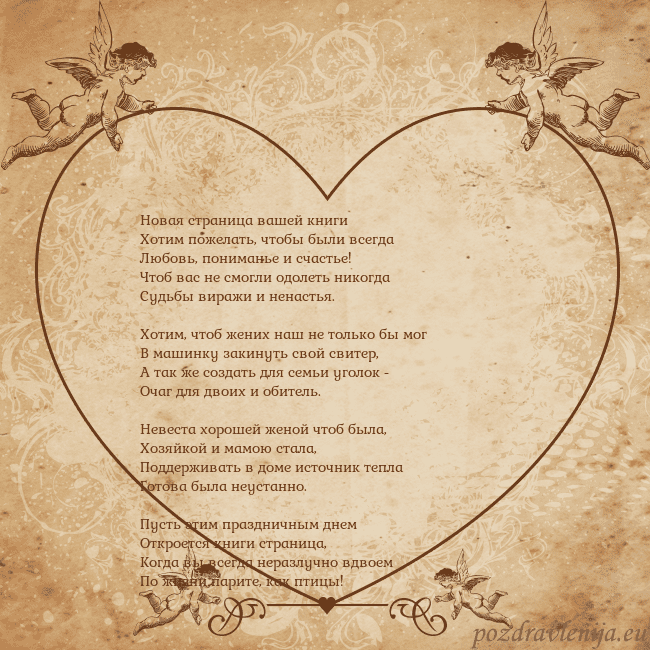 Новая страница вашей книги
Хотим пожелать, чтобы были всегда
Любовь, пониманье и счастье!
Чтоб вас не смогли одолеть никогда
Судьбы виражи и ненастья.

Хотим, чтоб жених наш не только бы мог
В машинку закинуть свой свитер,
А так же создать для семьи уголок -
Очаг для двоих и обитель.

Невеста хорошей женой чтоб была,
Хозяйкой и мамою стала,
Поддерживать в доме источник тепла
Готова была неустанно.

Пусть этим праздничным днем
Откроется книги страница,
Когда вы всегда неразлучно вдвоем
По жизни парите, как птицы!
pozdravlenija.eu